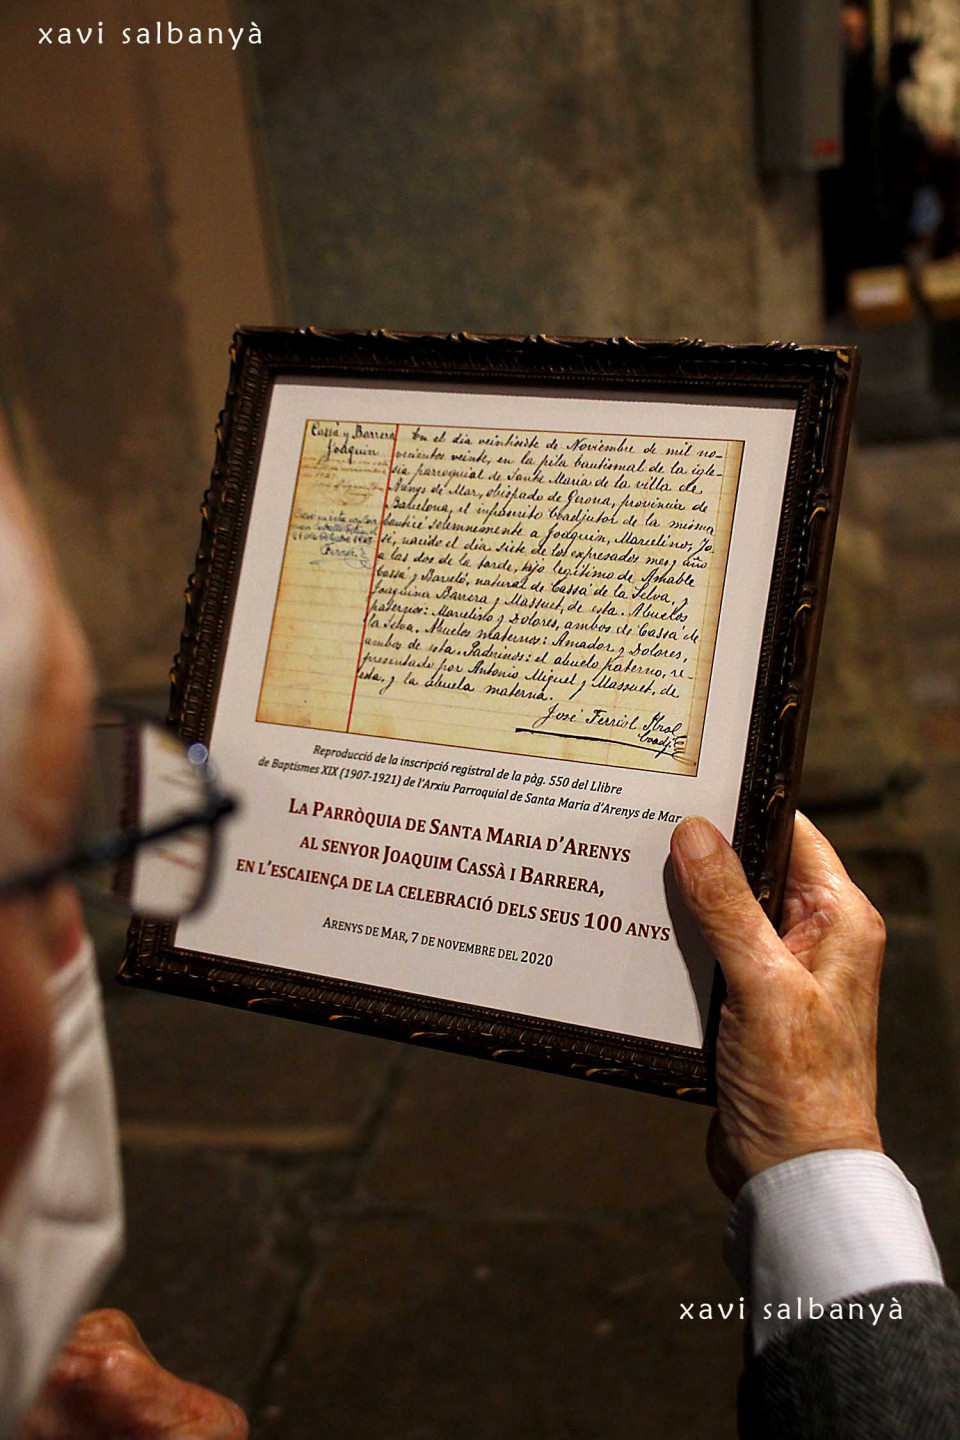 xavi salbanyà
Cassà y Barrera
Joaquin
En el día veintisiete de Noviembre de mil no-
vecientos veinte, en la pila bautismal de la igle-
sia parroquial de Santa María de la villa de
Arenys de Mar, obispado de Gerona, provincia de
Barcelona, el infrascrito Coadjutor de la misma,
bauticé solemnemente a Joaquin, Marcelino, Jo-
sé, nacido el día siete de los expresados mes y año
a las dos de la tarde, hijo legítimo de Amable
Cassá y Barceló, natural de Cassá de la Selva, y
Joaquina Barrera y Massuet, de esta. Abuelos
paternos: Marcelino y Dolores, ambos de Cassá de
la Selva. Abuelos maternos: Amador y Dolores,
ambos de esta. Padrinos: el abuelo paterno, re-
presentado por Antonio Miguel y Massuet, de
esta, y la abuela materna.
José Ferriol
Coadj.
Reproducció de la inscripció registral de la pàg. 550 del Llibre
de Baptismes XIX (1907-1921) de l'Arxiu Parroquial de Santa Maria d'Arenys de Mar
LA PARRÒQUIA DE SANTA MARIA D'ARENYS
AL SENYOR JOAQUIM CASSÀ I BARRERA,
EN L'ESCAIENÇA DE LA CELEBRACIÓ DELS SEUS 100 ANYS
ARENYS DE MAR, 7 DE NOVEMBRE DEL 2020
xavi salbanyà